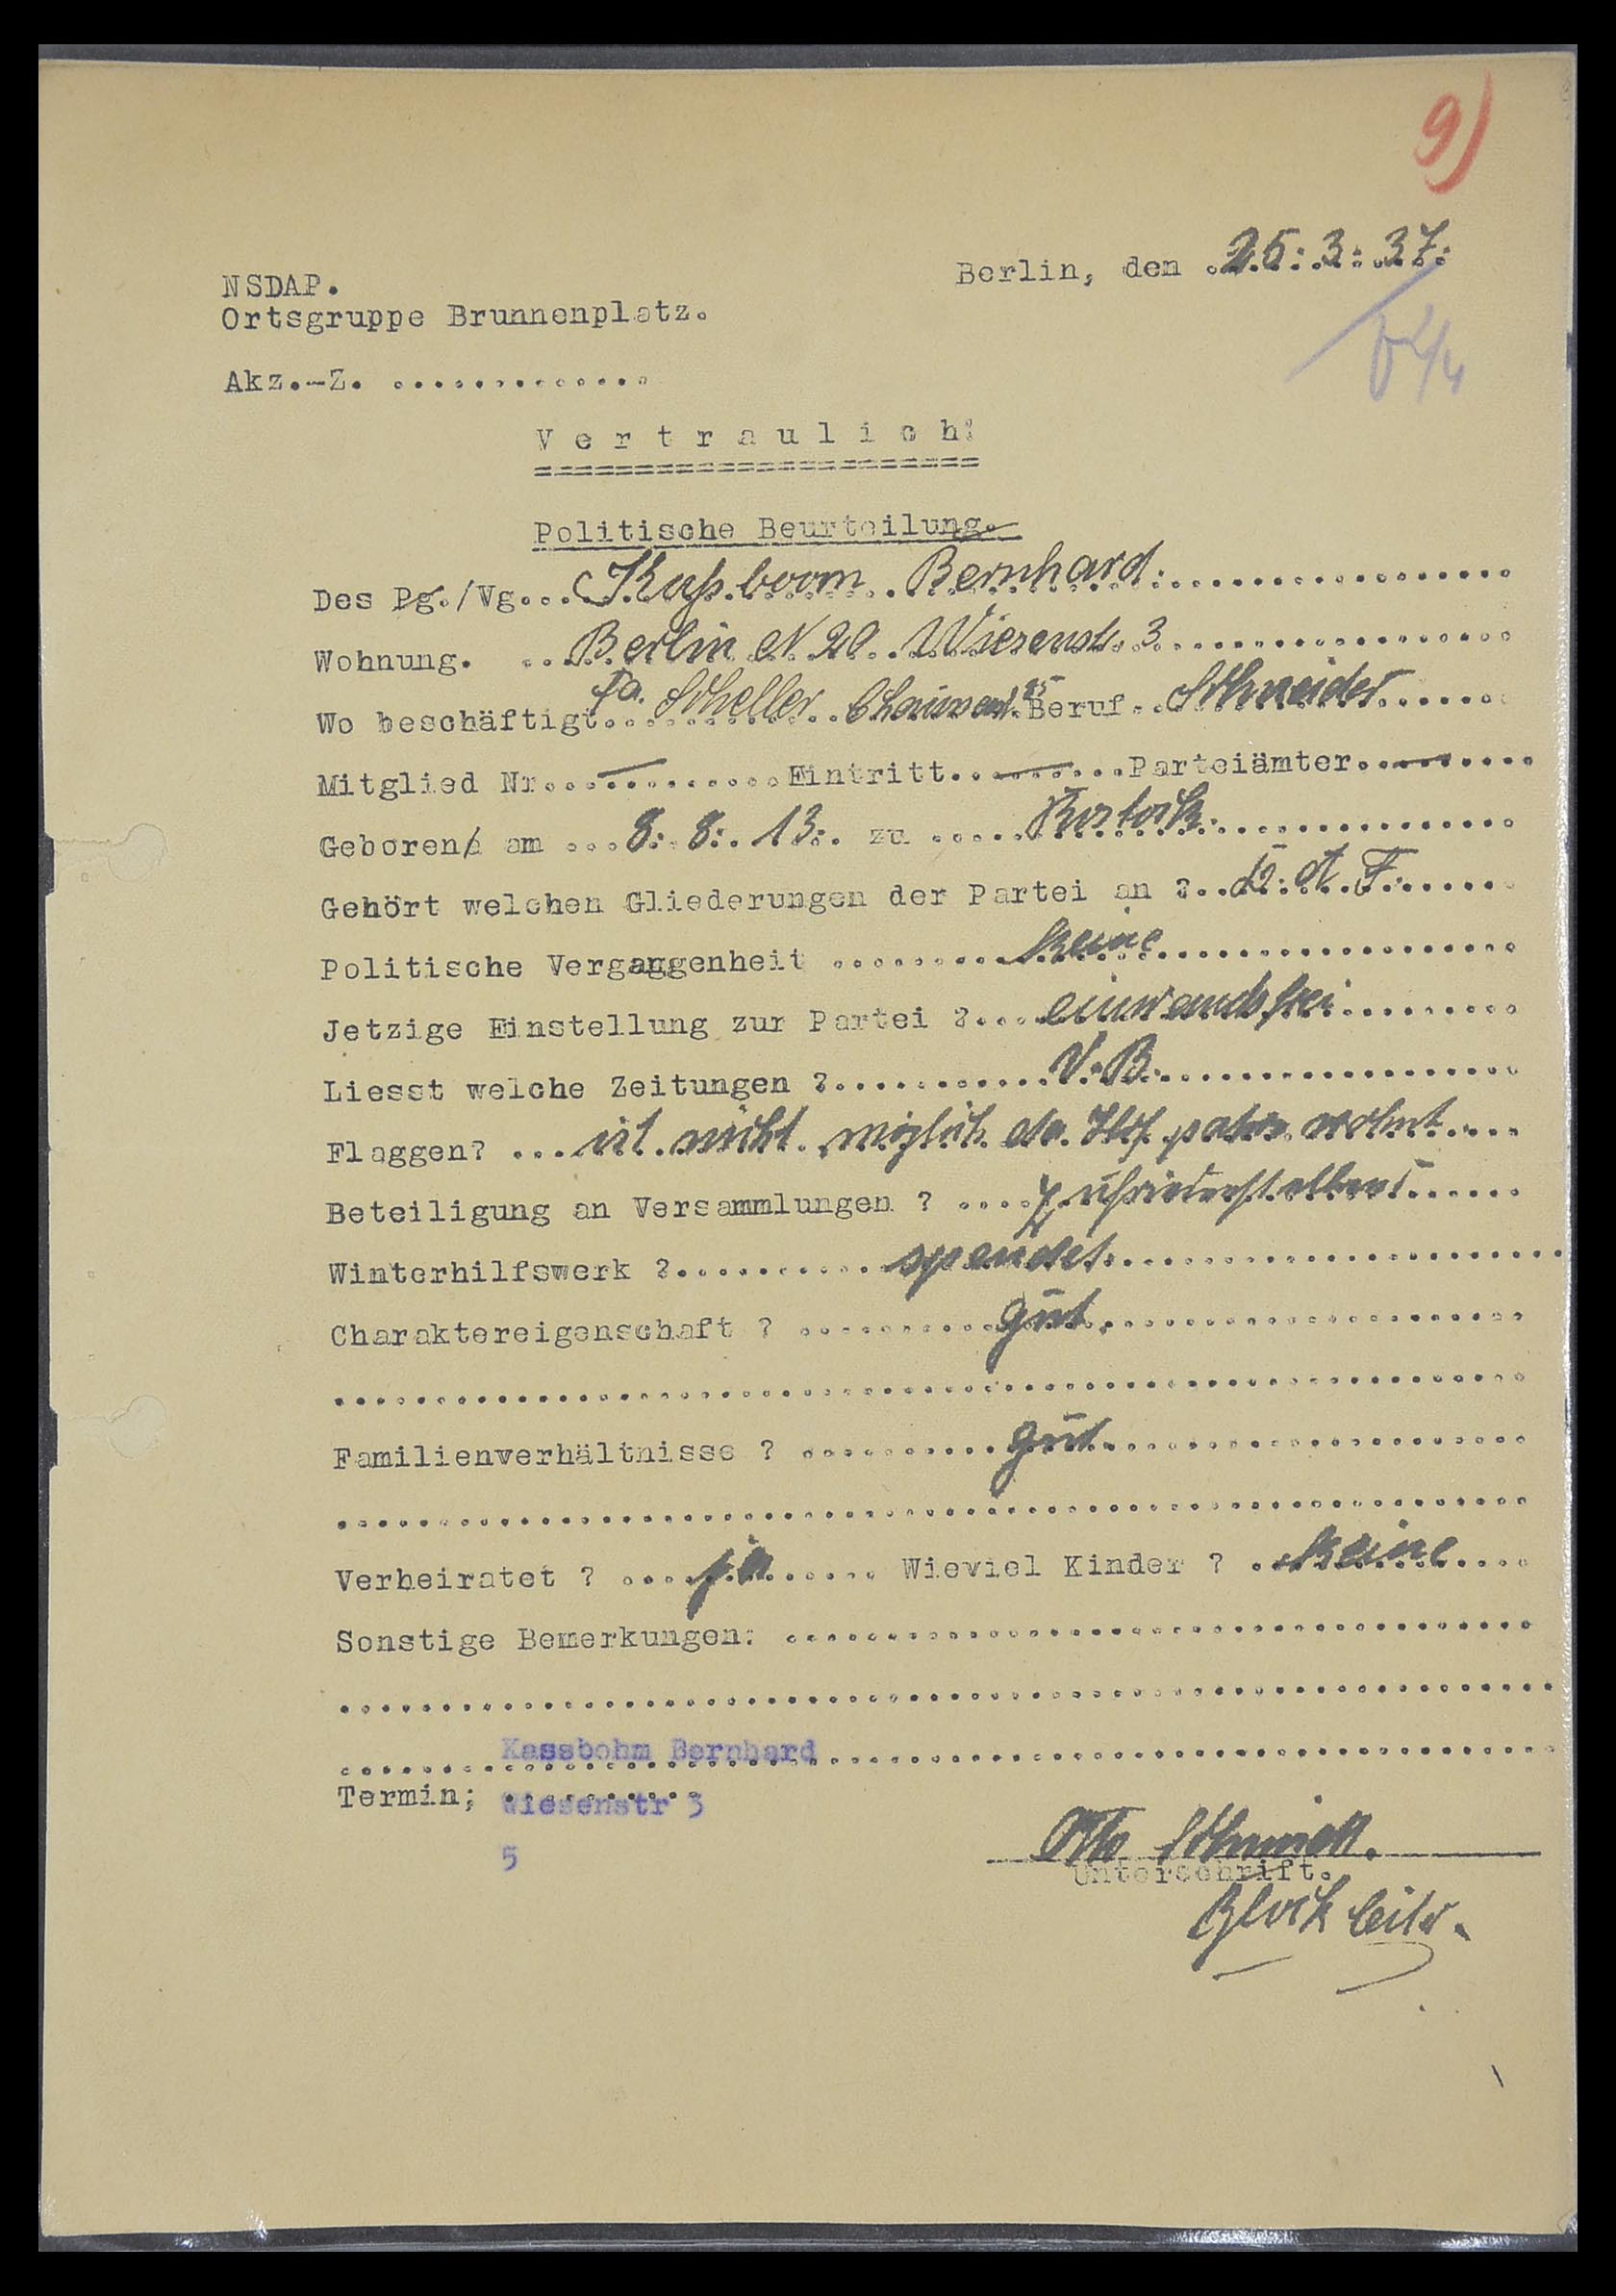 9)
Berlin, den 25.3.37.
NSDAP.
Ortsgruppe Brunnenplatz.
Akz.-Z. ..............
Vertraulich!
Politische Beurteilung.
Des Pg./Vg... Kaßboom Bernhard.
Wohnung. ... Berlin N 20. Wiesenstr. 3
Wo beschäftigt Fa. Scheller Beruf Schneider
Mitglied Nr. — Eintritt — Parteiämter —
Geboren am ... 8. 8. 13. zu ..... Rostock.
Gehört welchen Gliederungen der Partei an ?.. D. A. F.
Politische Vergangenheit ......... keine
Jetzige Einstellung zur Partei ?... einwandsfrei
Liesst welche Zeitungen ?........... V. B.
Flaggen? ... ist nicht möglich da Hof wohnt
Beteiligung an Versammlungen ? .... zufriedenstellend
Winterhilfswerk ?........... spendet
Charaktereigenschaft ? ........... gut.
Familienverhältnisse ? ........... gut.
Verheiratet ? .... ja ...... Wieviel Kinder ? .. keine
Sonstige Bemerkungen: ..............................
Kassbohm Bernhard
Termin; Wiesenstr 3
5
Otto
Unterschrift.
Blockleiter.